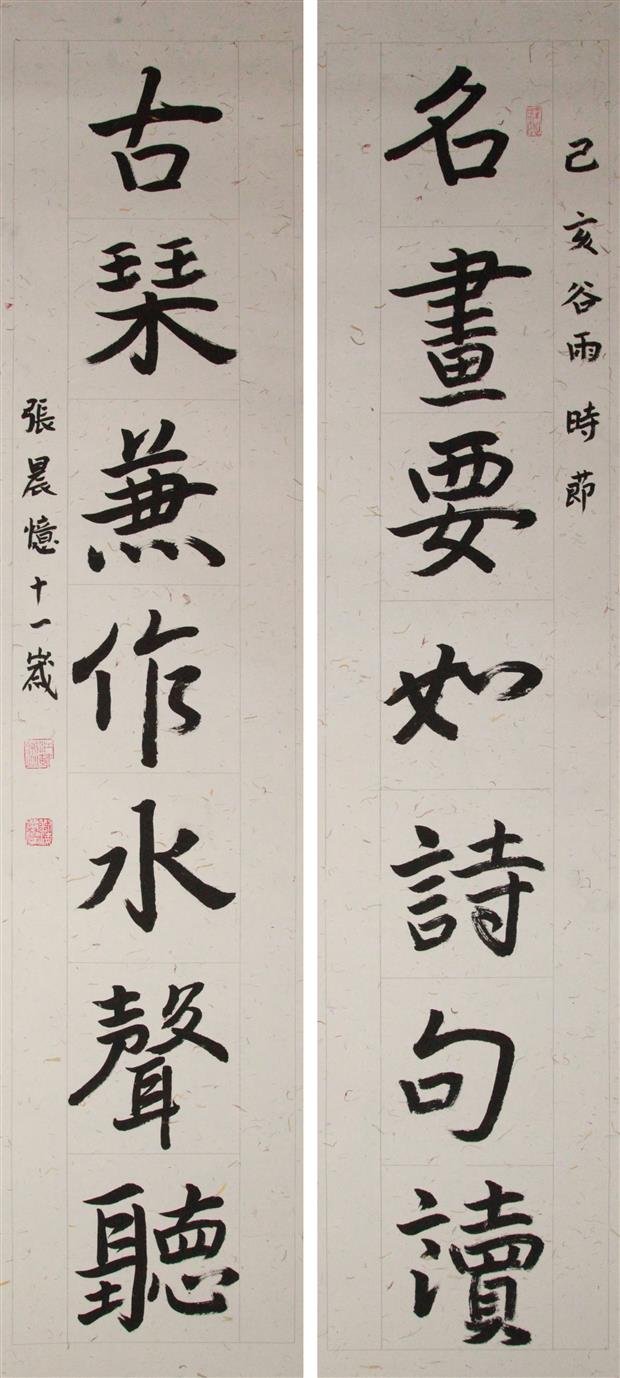 己亥谷雨時節
名畫要如詩句讀
古琹兼作水聲聽
張晨憶十一歲